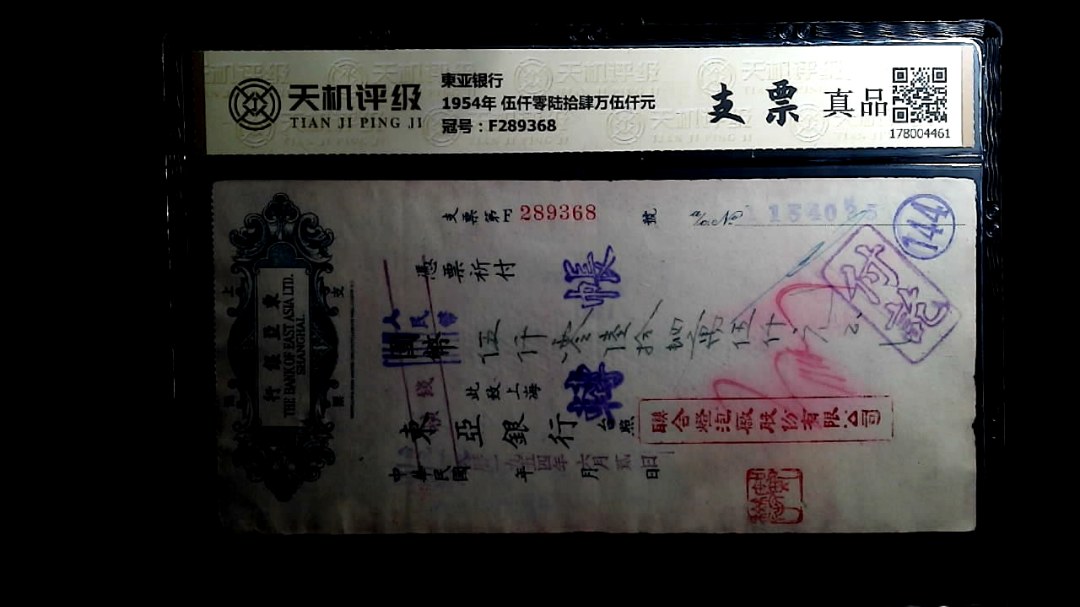 天机评级
TIAN JI PING JI
東亚银行
1954年 伍仟零陆拾肆万伍仟元
冠号：F289368
支票
真品
178004461
支票第 289368 號
a/c. No 154025
144
付訖
憑票祈付
人民幣
國幣
伍仟零陸拾肆萬伍仟元
轉帳
此致上海
東亞銀行
台照
中華民國 年 六月 貳日
聯合燈泡廠股份有限公司
上
支
東亞銀行
THE BANK OF EAST ASIA LTD.
SHANGHAI.